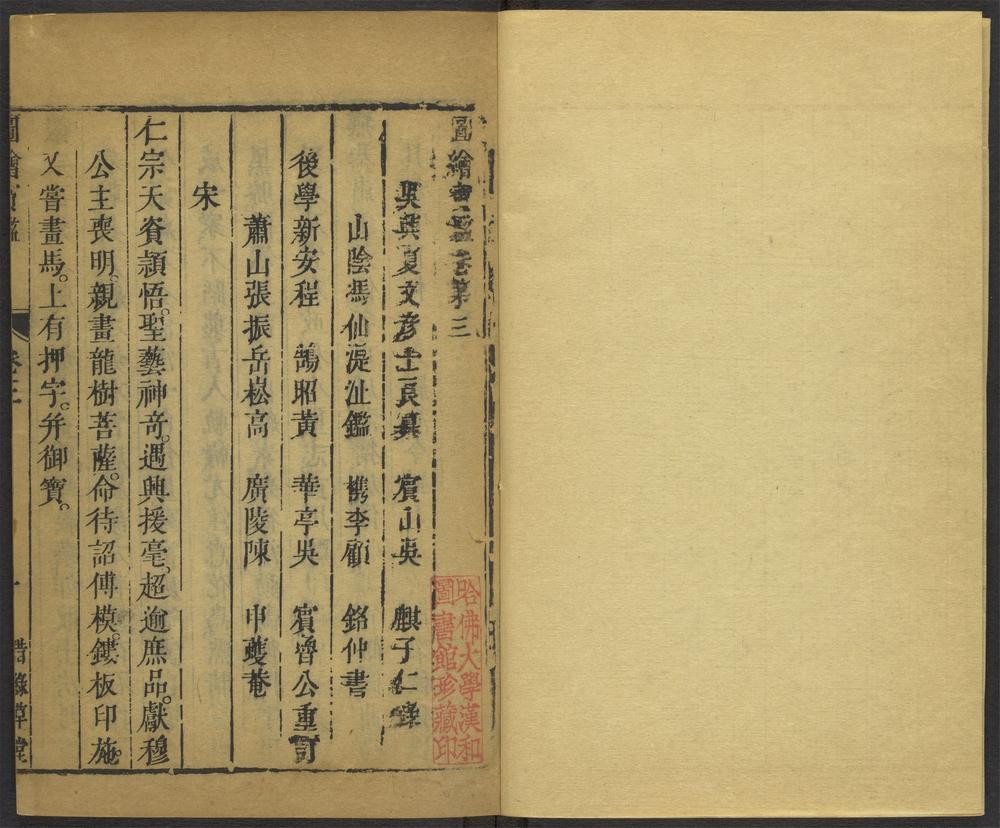 圖繪寶鑑卷第三
吳興夏文彥士良纂 寶山吳 麒子仁
山陰馮仙湜沚鑑 檇李顧 銘仲書
後學新安程 鵠昭黃 華亭吳 賓濟公重訂
蕭山張振岳崧高 廣陵陳 申蘷菴
宋
仁宗天資頴悟。聖藝神奇。遇興援毫。超逾庶品。獻穆
公主喪明。親畫龍樹菩薩。命待詔傅模。鏤板印施。
又嘗畫馬。上有押字。并御寶。
圖繪寶鑑
卷三
一
借綠草堂
哈佛大學漢和
圖書館珍藏印